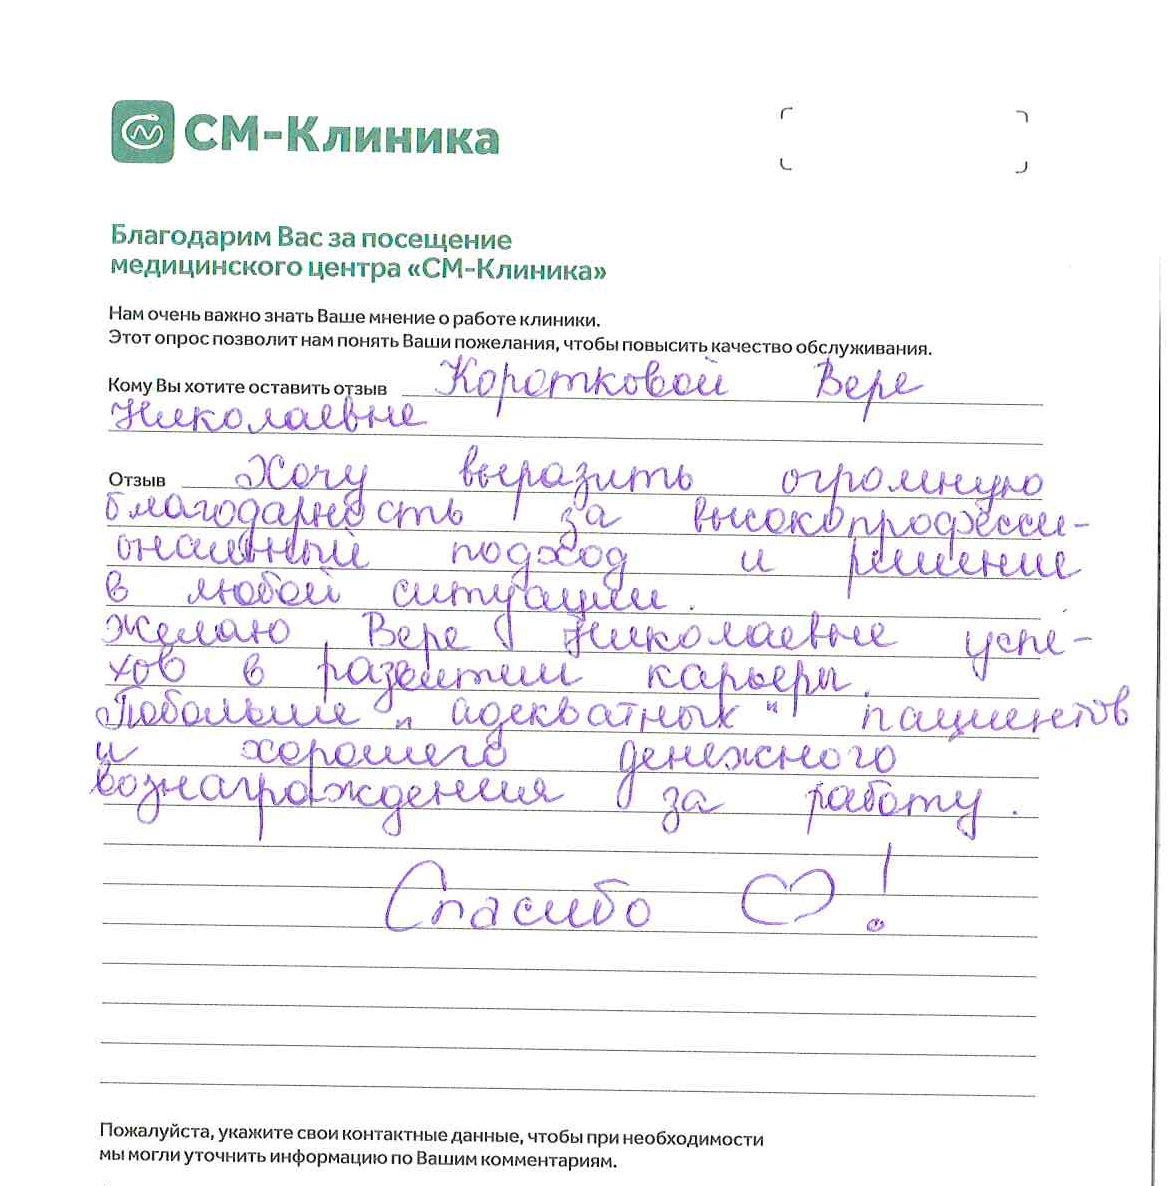 СМ-Клиника
Благодарим Вас за посещение
медицинского центра «СМ-Клиника»
Нам очень важно знать Ваше мнение о работе клиники.
Этот опрос позволит нам понять Ваши пожелания, чтобы повысить качество обслуживания.
Кому Вы хотите оставить отзыв Коротковой Вере
Николаевне
Отзыв Хочу выразить огромную
благодарность за высокопрофесси-
ональный подход и решение
в любой ситуации.
Желаю Вере Николаевне успе-
хов в развитии карьеры.
Побольше „адекватных" пациентов
и хорошего денежного
вознаграждения за работу.
Спасибо ♡!
Пожалуйста, укажите свои контактные данные, чтобы при необходимости
мы могли уточнить информацию по Вашим комментариям.